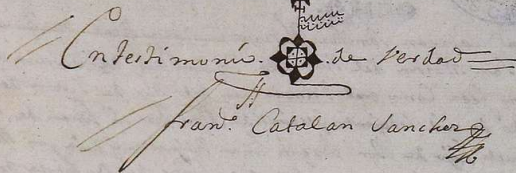 En testimonio de verdad
Fran.º Catalan Sanchez